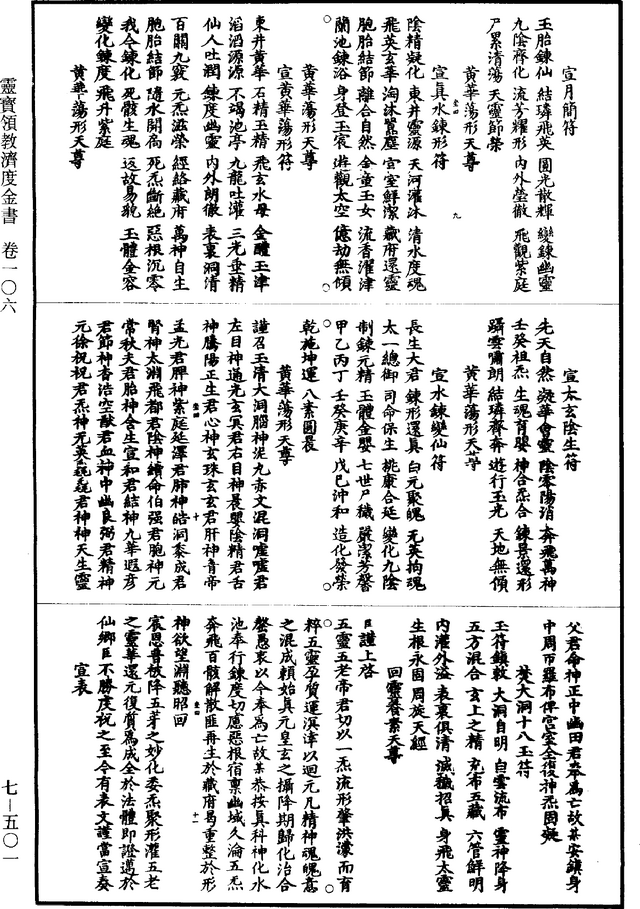 宣月簡符
玉胎鍊仙 結璘飛英 圓光散輝 變鍊幽靈
九陰齊化 流芳耀形 內外瑩徹 飛觀紫庭
尸累清蕩 天靈節榮
黃華蕩形天尊
宣真水鍊形符
陰精凝化 東井靈源 天河灌沐 清水度魂
飛英玄華 淘沐囂塵 宮室鮮潔 藏府還靈
胞胎結節 離合自然 金童玉女 流香濯津
蘭池鍊浴 身登玉宸 遊觀太空 億劫無傾
黃華蕩形天尊
宣黃華蕩形符
東井黃華 石精玉精 飛玄水母 金醴玉津
滔滔源源 不竭池亭 九龍吐灌 三光垂精
仙人吐潤 鍊度幽靈 內外朗徹 表裏洞清
百關九竅 元炁滋榮 經絡藏府 萬神自生
胞胎結節 隨水開扃 死炁斷絕 惡根沉零
我今鍊化 死骸生魂 返故易貌 玉體全容
變化鍊度 飛升紫庭
黃華蕩形天尊
宣太玄陰生符
先天自然 凝華會靈 陰零陽消 奔飛萬神
壬癸祖炁 生魂育嬰 神合炁合 鍊景還形
躡雲嘯朗 結璘齊奔 遊行玉光 天地無傾
黃華蕩形天尊
宣水鍊變仙符
長生大君 鍊形還真 白元聚魄 无英拘魂
太一總御 司命保生 桃康合延 變化九陰
制鍊元精 玉體金嬰 七世尸穢 嚴潔芳馨
甲乙丙丁 壬癸庚辛 戊巳沖和 造化發榮
乾施坤運 八素圓晨
黃華蕩形天尊
謹召玉清大洞腦神泥九赤文混洞噓噓君
左目神通光玄冥君右目神晨嬰陰精君舌
神騰陽正生君心神玄珠玄玄君肝神青帝
孟光君脾神紫庭延澤君肺神皓洞黍成君
腎神太淵飛都君陰神續命伯强君胞神元
常秋夫君胎神含生宣和君結神九華遐彥
君節神香浩空猷君血神中幽良弼君精神
元徐祝祝君炁神元英巍巍君神神天生靈
父君命神正中幽田君奉爲亡故某安鎮身
中周帀羅布俾宮室全復神炁固凝
焚大洞十八玉符
玉符鎮敕 大洞自明 白雲流布 靈神降身
五方混合 玄上之精 充布五藏 六管鮮明
內灌外溢 表裏俱清 滅殲招真 身飛太靈
生根永固 周旋天經
回靈養素天尊
具謹上啓
五靈五老帝君切以一炁流形肇洪濛而育
粹五靈孕質運溟涬以迴元凡精神魂魄意
之混成頼始真元皇玄之攝降期歸化治合
罄愚衷以今奉爲亡故某恭按真科神化水
池奉行鍊度切慮惡根宿稟幽域久淪五炁
奔飛百骸解散匪再生於藏府曷重整於形
神欲望淵聽昭回
宸恩普被降五芽之妙化委炁聚形濯五老
之靈華還元復質爲成全於法體即證邁於
仙鄉臣不勝度祝之至今有表文謹當宣奏
宣表
靈寶領教濟度金書 卷一〇六
七－五〇一